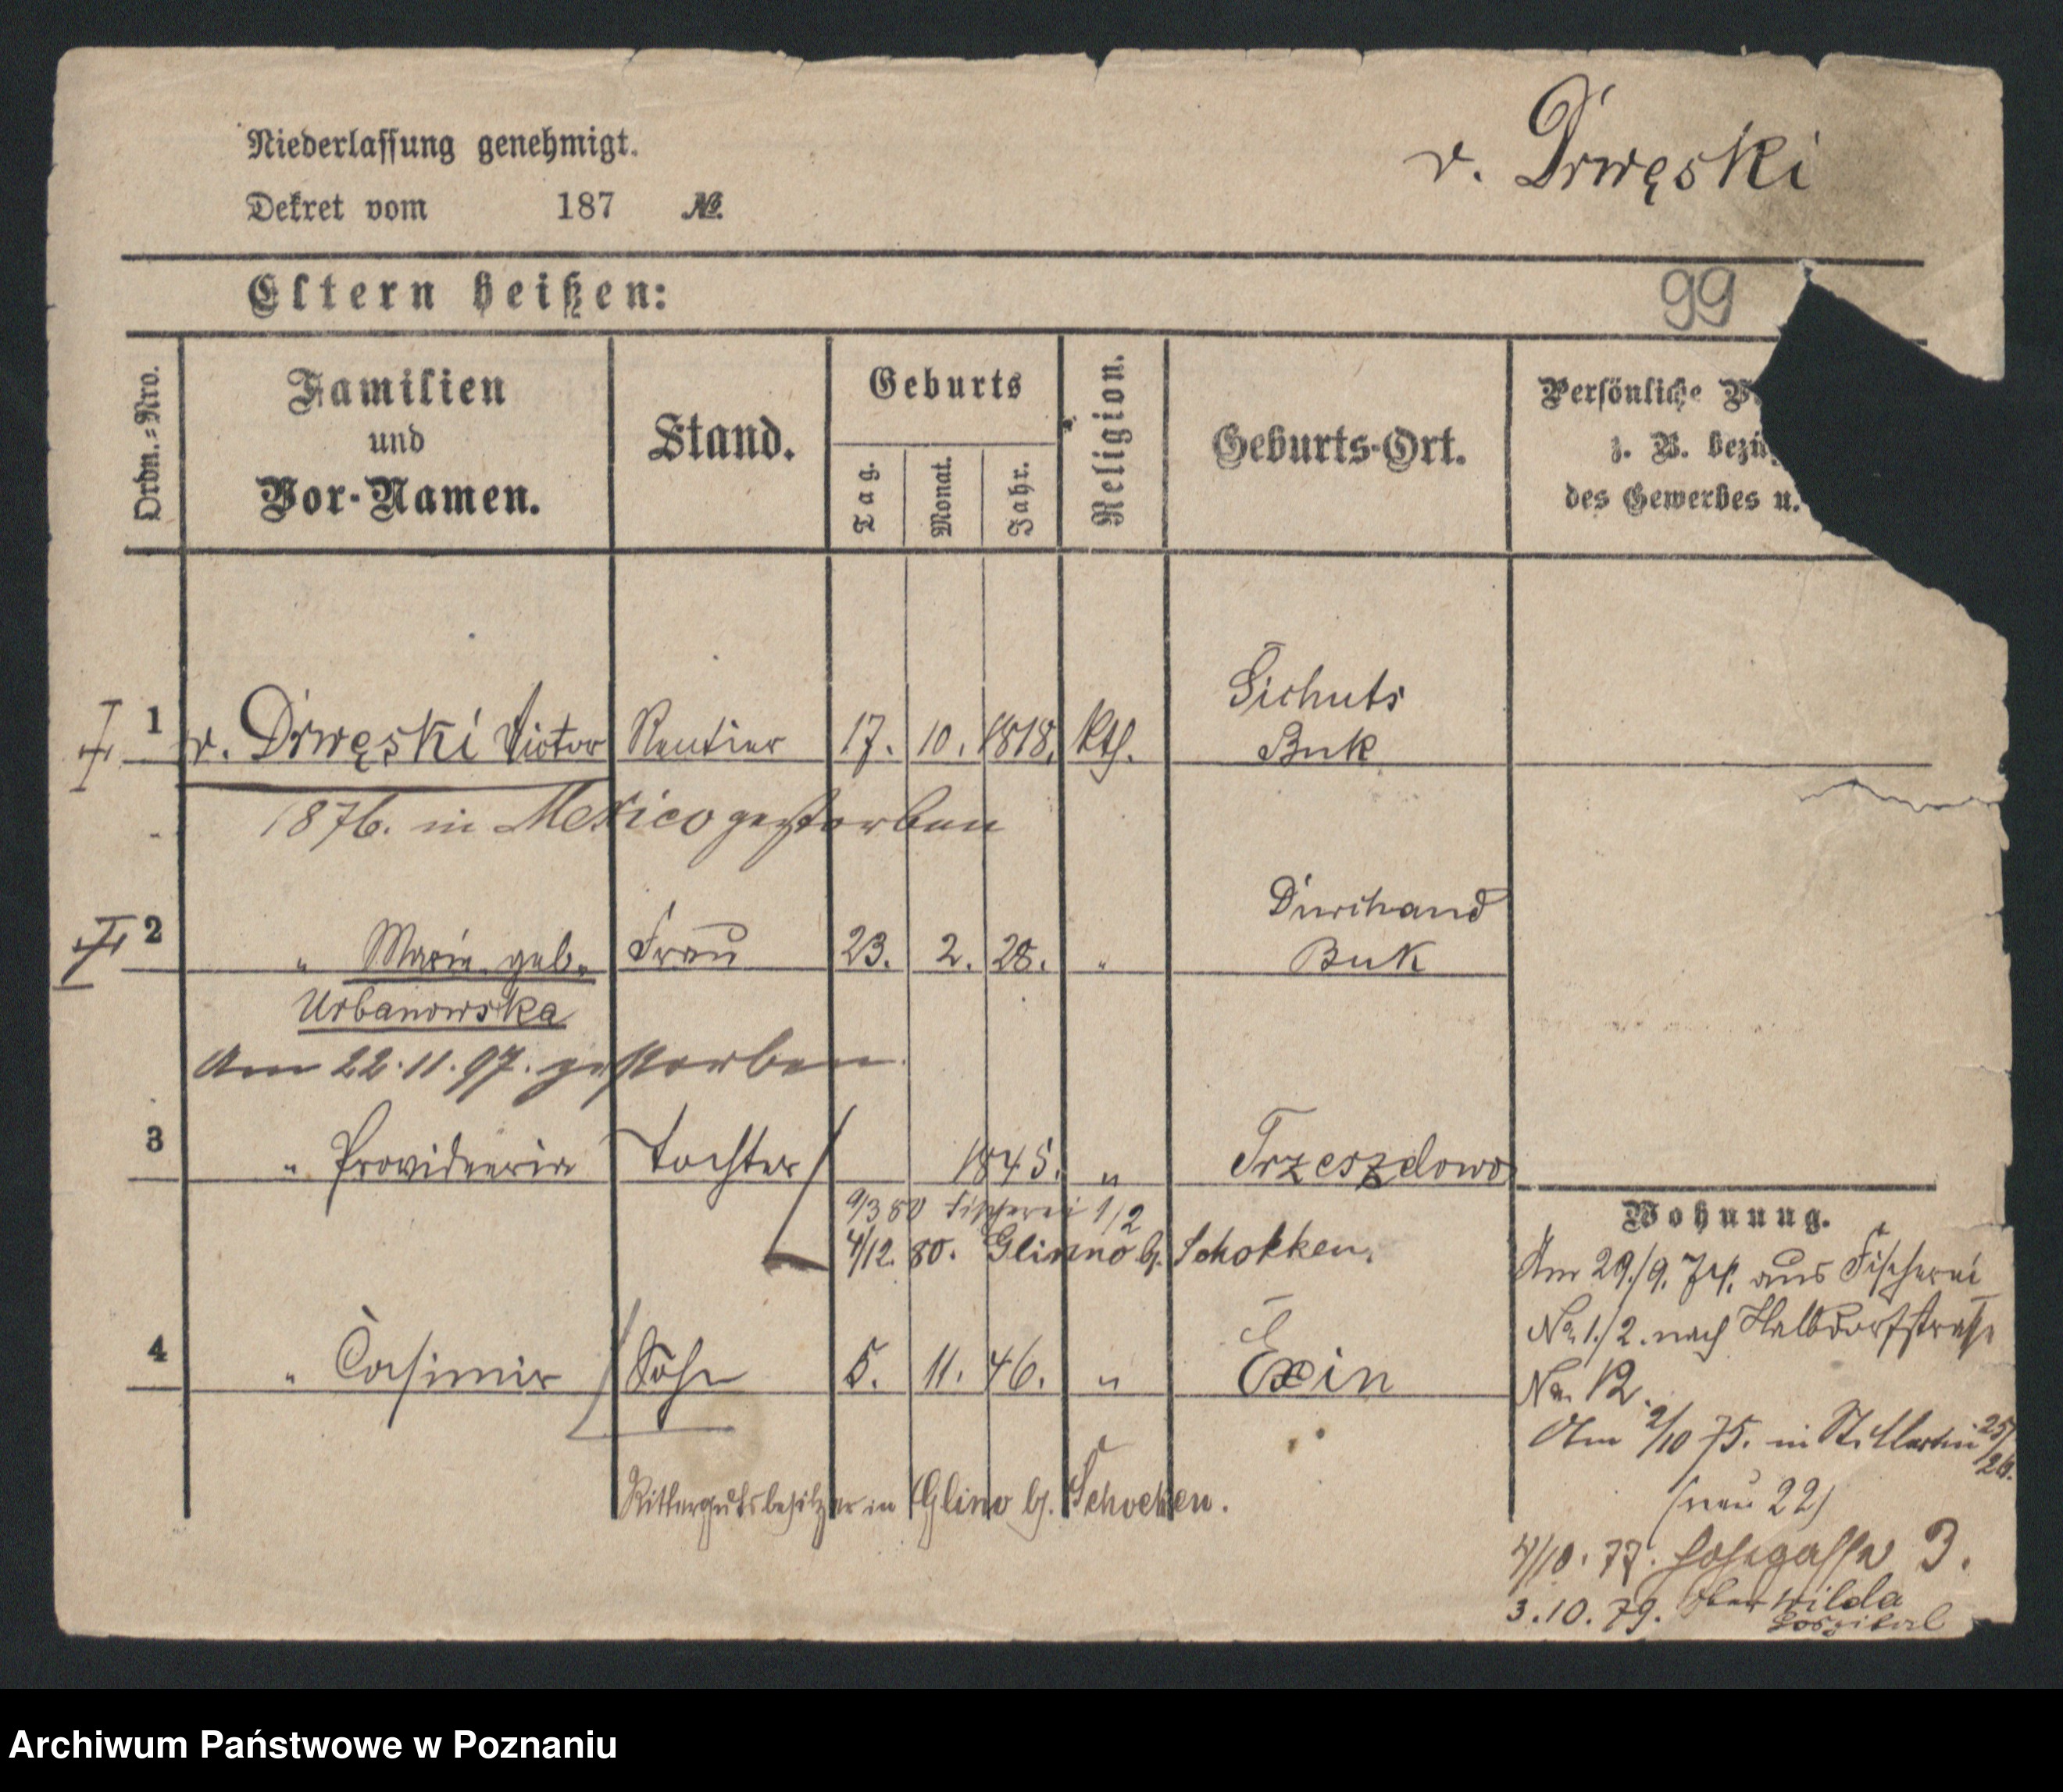 Niederlassung genehmigt.
v. Drwęski
Dekret vom 187 №
Eltern heißen:
99
Ordn.-Nro.
Familien
und
Vor-Namen.
Stand.
Geburts
Tag.
Monat.
Jahr.
Religion.
Geburts-Ort.
Persönliche
z. B.
des Gewerbes u.
1 v. Drwęski Victor Rentier 17. 10. 1818. kth. Buk
1876. in Mexico gestorben
2 " Marie geb. Frau 23. 2. 28. " Buk
Urbanowska
Am 22.11.97. gestorben.
3 " Tochter 1845. "
9/3 80 Fischerei 1/2
4/12. 80. Glinno b. Schokken.
4 " Casimir Sohn 5. 11. 46. " Exin
Rittergutsbesitzer in Glino b. Schocken.
Wohnung.
Am 29./9. 74. aus Fischerei
No. 1./2. nach Halbdorfstraße
No. 12.
Am 2/10 75. in St. Martin 25/26.
(neu 22)
4/10. 77. 3.
3.10.79. Ober Wilda
Hospital
Archiwum Państwowe w Poznaniu